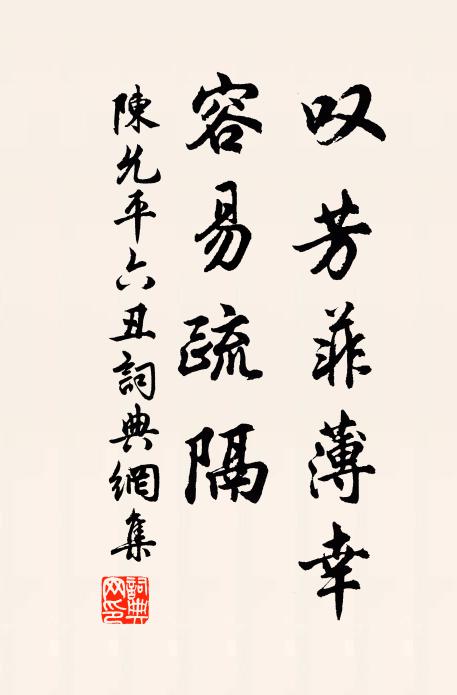 叹芳菲薄幸
容易疏隔
陳允平六丑詞典網集
詞典網印